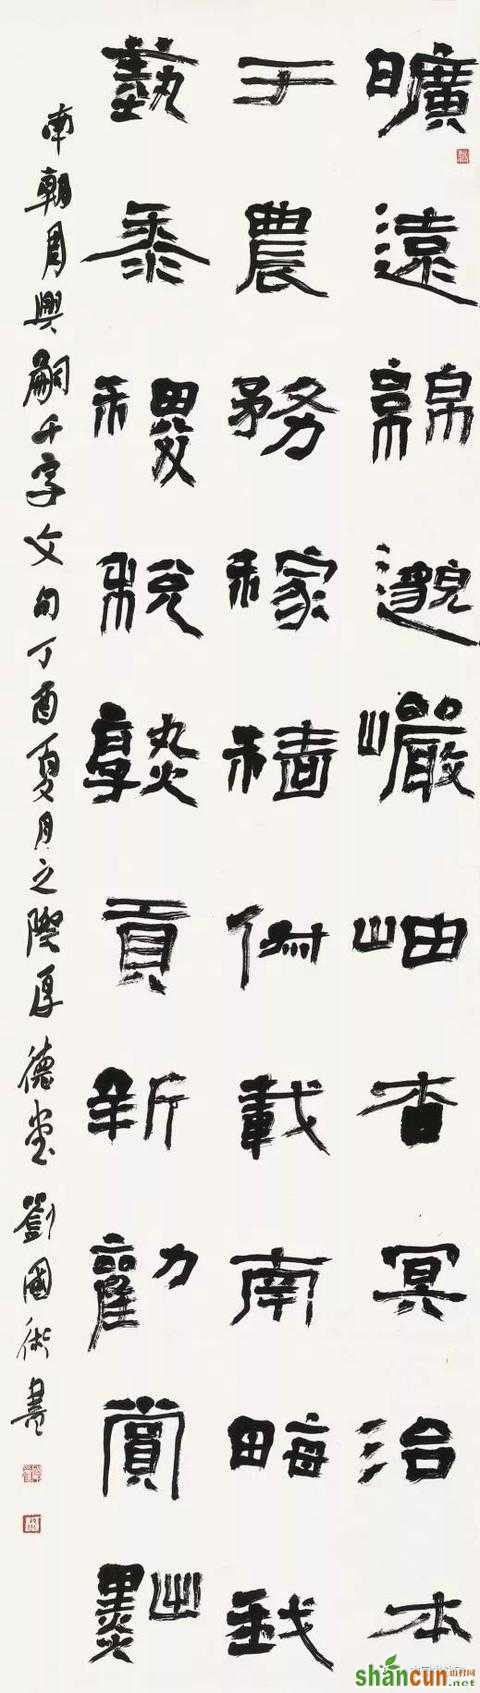 曠遠綿邈巖岫杳冥治本
于農務稼穡俶載南畝我
藝黍稷稅熟貢新勸賞黜
南朝周興嗣千字文句丁酉夏月之際厚德堂劉國術書
shancun
山村网
.net